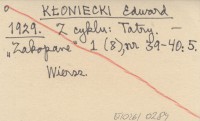 KŁONIECKI Edward
1929. Z cyklu: Tatry. —
"Zakopane" 1 (8), nr 39-40: 5.
Wiersz